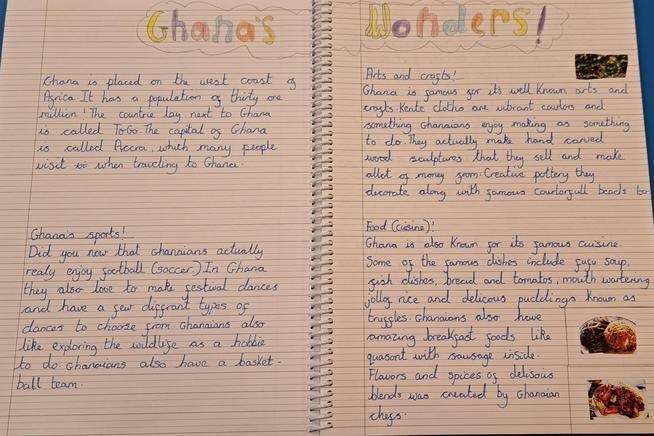 Ghana's Wonders!
Ghana is placed on the west coast of
Africa. It has a population of thirty one
million! The countrie lay next to Ghana
is called ToGo. The capital of Ghana
is called Accra, which many people
visit when traveling to Ghana.
Ghana's sports!
Did you now that Ghanaians actually
realy enjoy football (soccer.) In Ghana
they also love to make festival dances
and have a few diffrant types of
dances to choose from. Ghanaians also
like exploring the wildlife as a hobbie
to do. Ghanaians also have a basket-
ball team.
Arts and crafts!
Ghana is famous for it's well known arts and
crafts. Kente cloths are vibrant coulors and
something Ghanaians enjoy making as something
to do. They actually make hand carved
wood sculptures that they sell and make
allot of money from. Creative pottery they
decorate along with famous coulorfull beads to
Food (cuisine)!
Ghana is also known for its famous cuisine.
Some of the famous dishes include fufu soup,
fish dishes, bread and tomatos, mouth wartering
jollof rice and delicous puddings known as
truffles. Ghanaians also have
amazing breakfast foods like
quasont with sausage inside.
Flavors and spices of delisous
blends was created by Ghanaian
chefs.